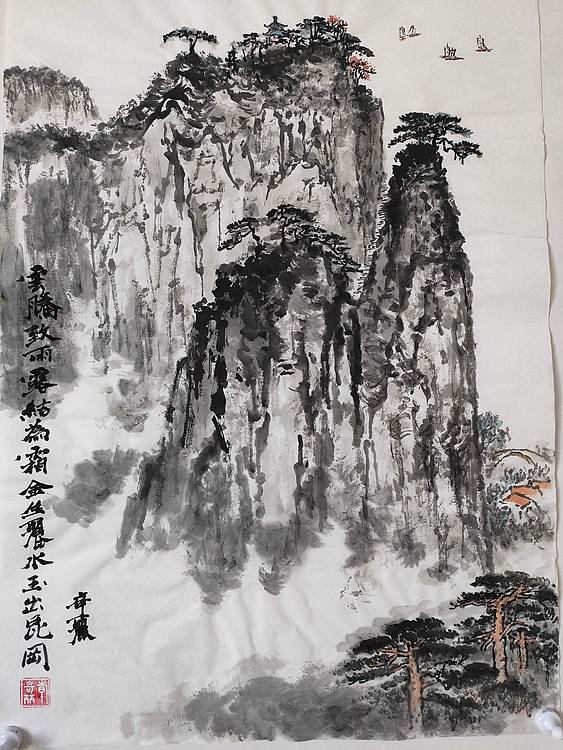 雲騰致雨露結為霜金生麗水玉出昆岡